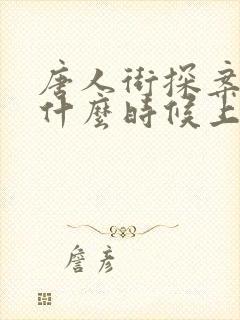 唐人街探案
什麼時候上
詹彥